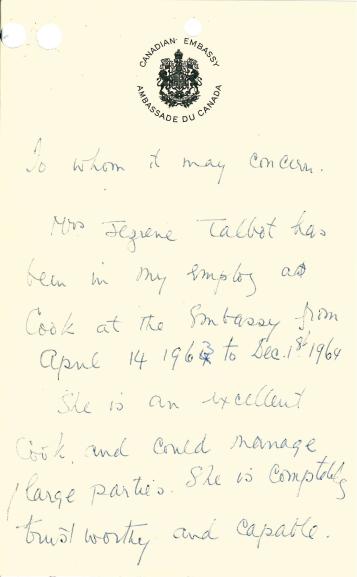 CANADIAN EMBASSY
AMBASSADE DU CANADA
To whom it may concern.
Mrs Talbot has
been in my employ as
Cook at the Embassy from
April 14 196 to Dec. 1st 1964
She is an excellent
Cook, and could manage
large parties. She is completely
trustworthy and capable.